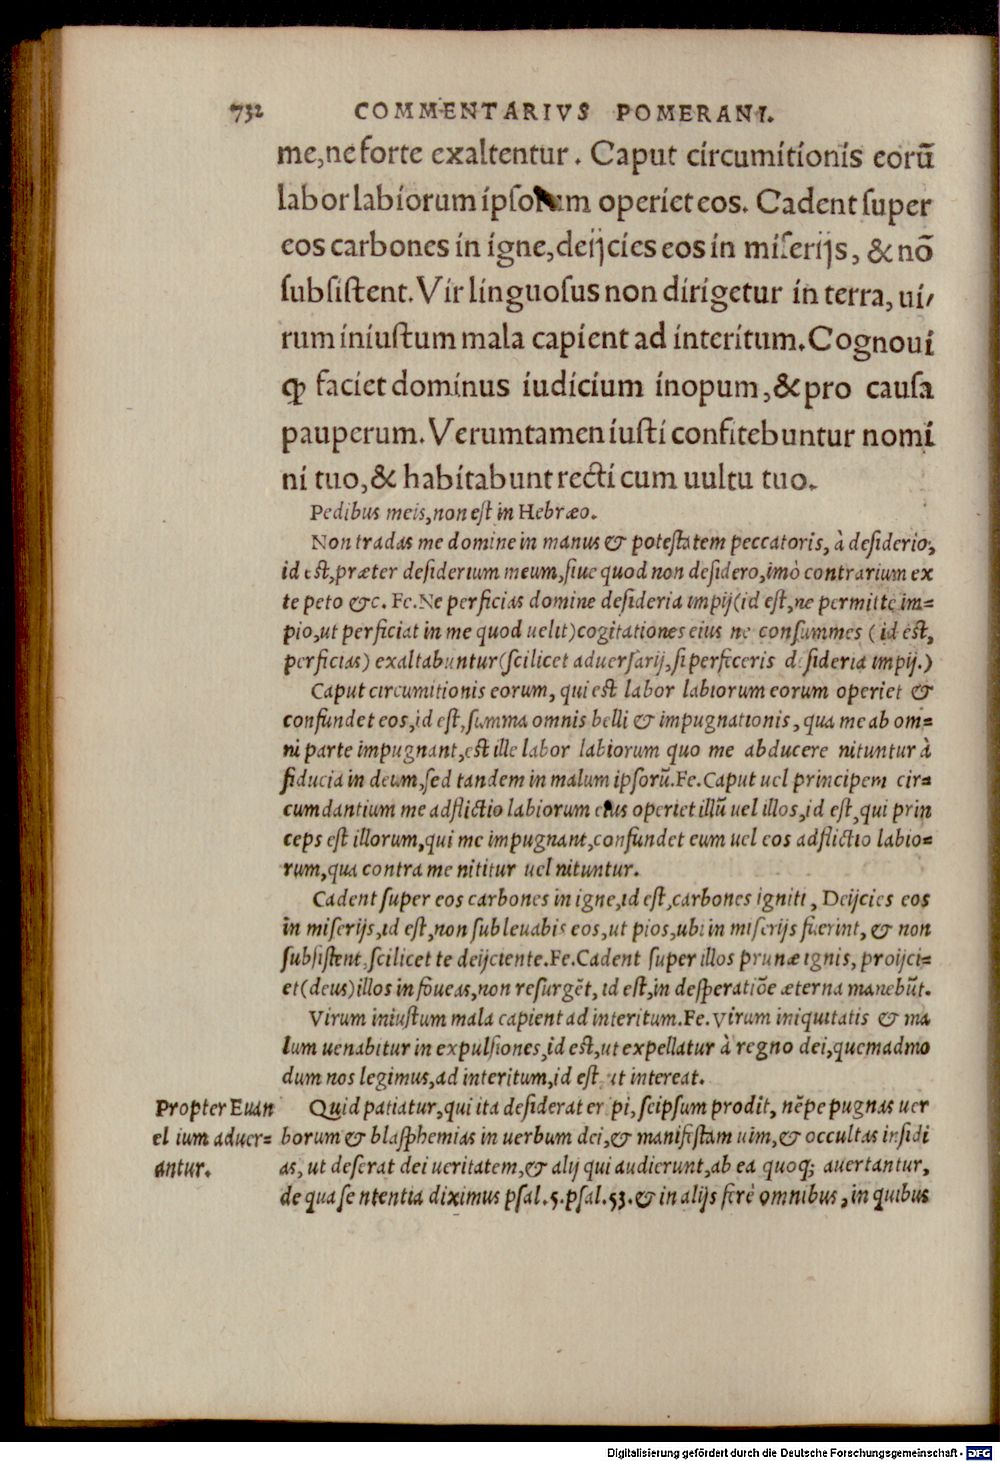 732 COMMENTARIVS POMERANI.
me, ne forte exaltentur. Caput circumitionis eorũ
labor labiorum ipsorum operiet eos. Cadent ſuper
eos carbones in igne, deijcies eos in miſerijs, & nõ
ſubſiſtent. Vir linguoſus non dirigetur in terra, ui/
rum iniuſtum mala capient ad interitum. Cognoui
ꝙ faciet dominus iudicium inopum, & pro cauſa
pauperum. Verumtamen iuſti confitebuntur nomi
ni tuo, & habitabunt recti cum uultu tuo.
Pedibus meis, non eſt in Hebræo.
Non tradas me domine in manus & poteſtatem peccatoris, à deſiderio,
id eſt, præter deſiderium meum, ſiue quod non deſidero, imò contrarium ex
te peto &c. Fe. Ne perficias domine deſideria impij (id eſt, ne permitte im=
pio, ut perficiat in me quod uelit) cogitationes eius ne conſummes (id eſt,
perficias) exaltabuntur (ſcilicet aduerſarij, ſi perfeceris deſideria impij.)
Caput circumitionis eorum, qui eſt labor labiorum eorum operiet &
confundet eos, id eſt, ſumma omnis belli & impugnationis, qua me ab om=
ni parte impugnant, eſt ille labor labiorum quo me abducere nituntur à
fiducia in deum, ſed tandem in malum ipſorũ. Fe. Caput uel principem cir=
cumdantium me adflictio labiorum eius operiet illũ uel illos, id eſt, qui prin
ceps eſt illorum, qui me impugnant, confundet eum uel eos adflictio labio=
rum, qua contra me nititur uel nituntur.
Cadent ſuper eos carbones in igne, id eſt, carbones igniti, Deijcies eos
in miſerijs, id eſt, non ſubleuabis eos, ut pios, ubi in miſerijs fuerint, & non
ſubſiſtent, ſcilicet te deijciente. Fe. Cadent ſuper illos prunæ ignis, proijci=
et (deus) illos in foueas, non reſurgẽt, id eſt, in deſperatiõe æterna manebũt.
Virum iniuſtum mala capient ad interitum. Fe. Virum iniquitatis & ma
lum uenabitur in expulſiones, id eſt, ut expellatur à regno dei, quemadmo
dum nos legimus, ad interitum, id eſt ut intereat.
Propter Euan
el ium aduer=
ſantur.
Quid patiatur, qui ita deſiderat er pi, ſeipſum prodit, nẽpe pugnas uer
borum & blaſphemias in uerbum dei, & manifeſtam uim, & occultas inſidi
as, ut deſerat dei ueritatem, & alij qui audierunt, ab ea quoq; auertantur,
de qua ſententia diximus pſal. 5. pſal. 53. & in alijs ferè omnibus, in quibus
Digitalisierung gefördert durch die Deutsche Forschungsgemeinschaft - DFG